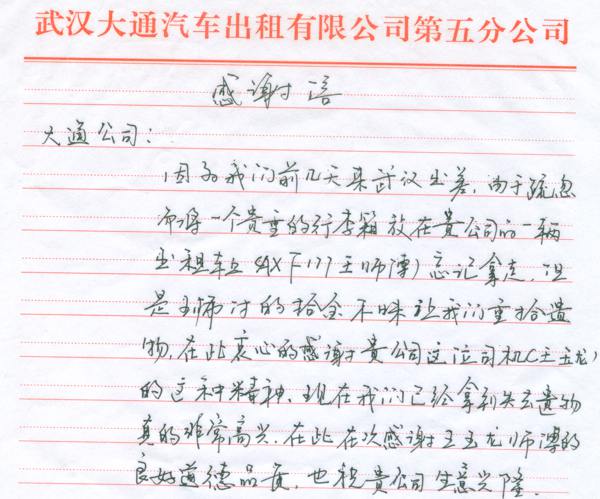 武汉大通汽车出租有限公司第五分公司
感谢
大通公司：
因为我们前几天来武汉出差，由于疏忽
而将一个贵重的行李箱放在贵公司的一辆
出租车上 王师傅）忘记拿走，但
是王师付的拾金不昧让我们重拾遗
物，在此衷心的感谢贵公司这位司机（王玉龙）
的这种精神，现在我们已经拿到失去遗物
真的非常高兴，在此在次感谢王玉龙师傅的
良好道德品质，也祝贵公司生意兴隆